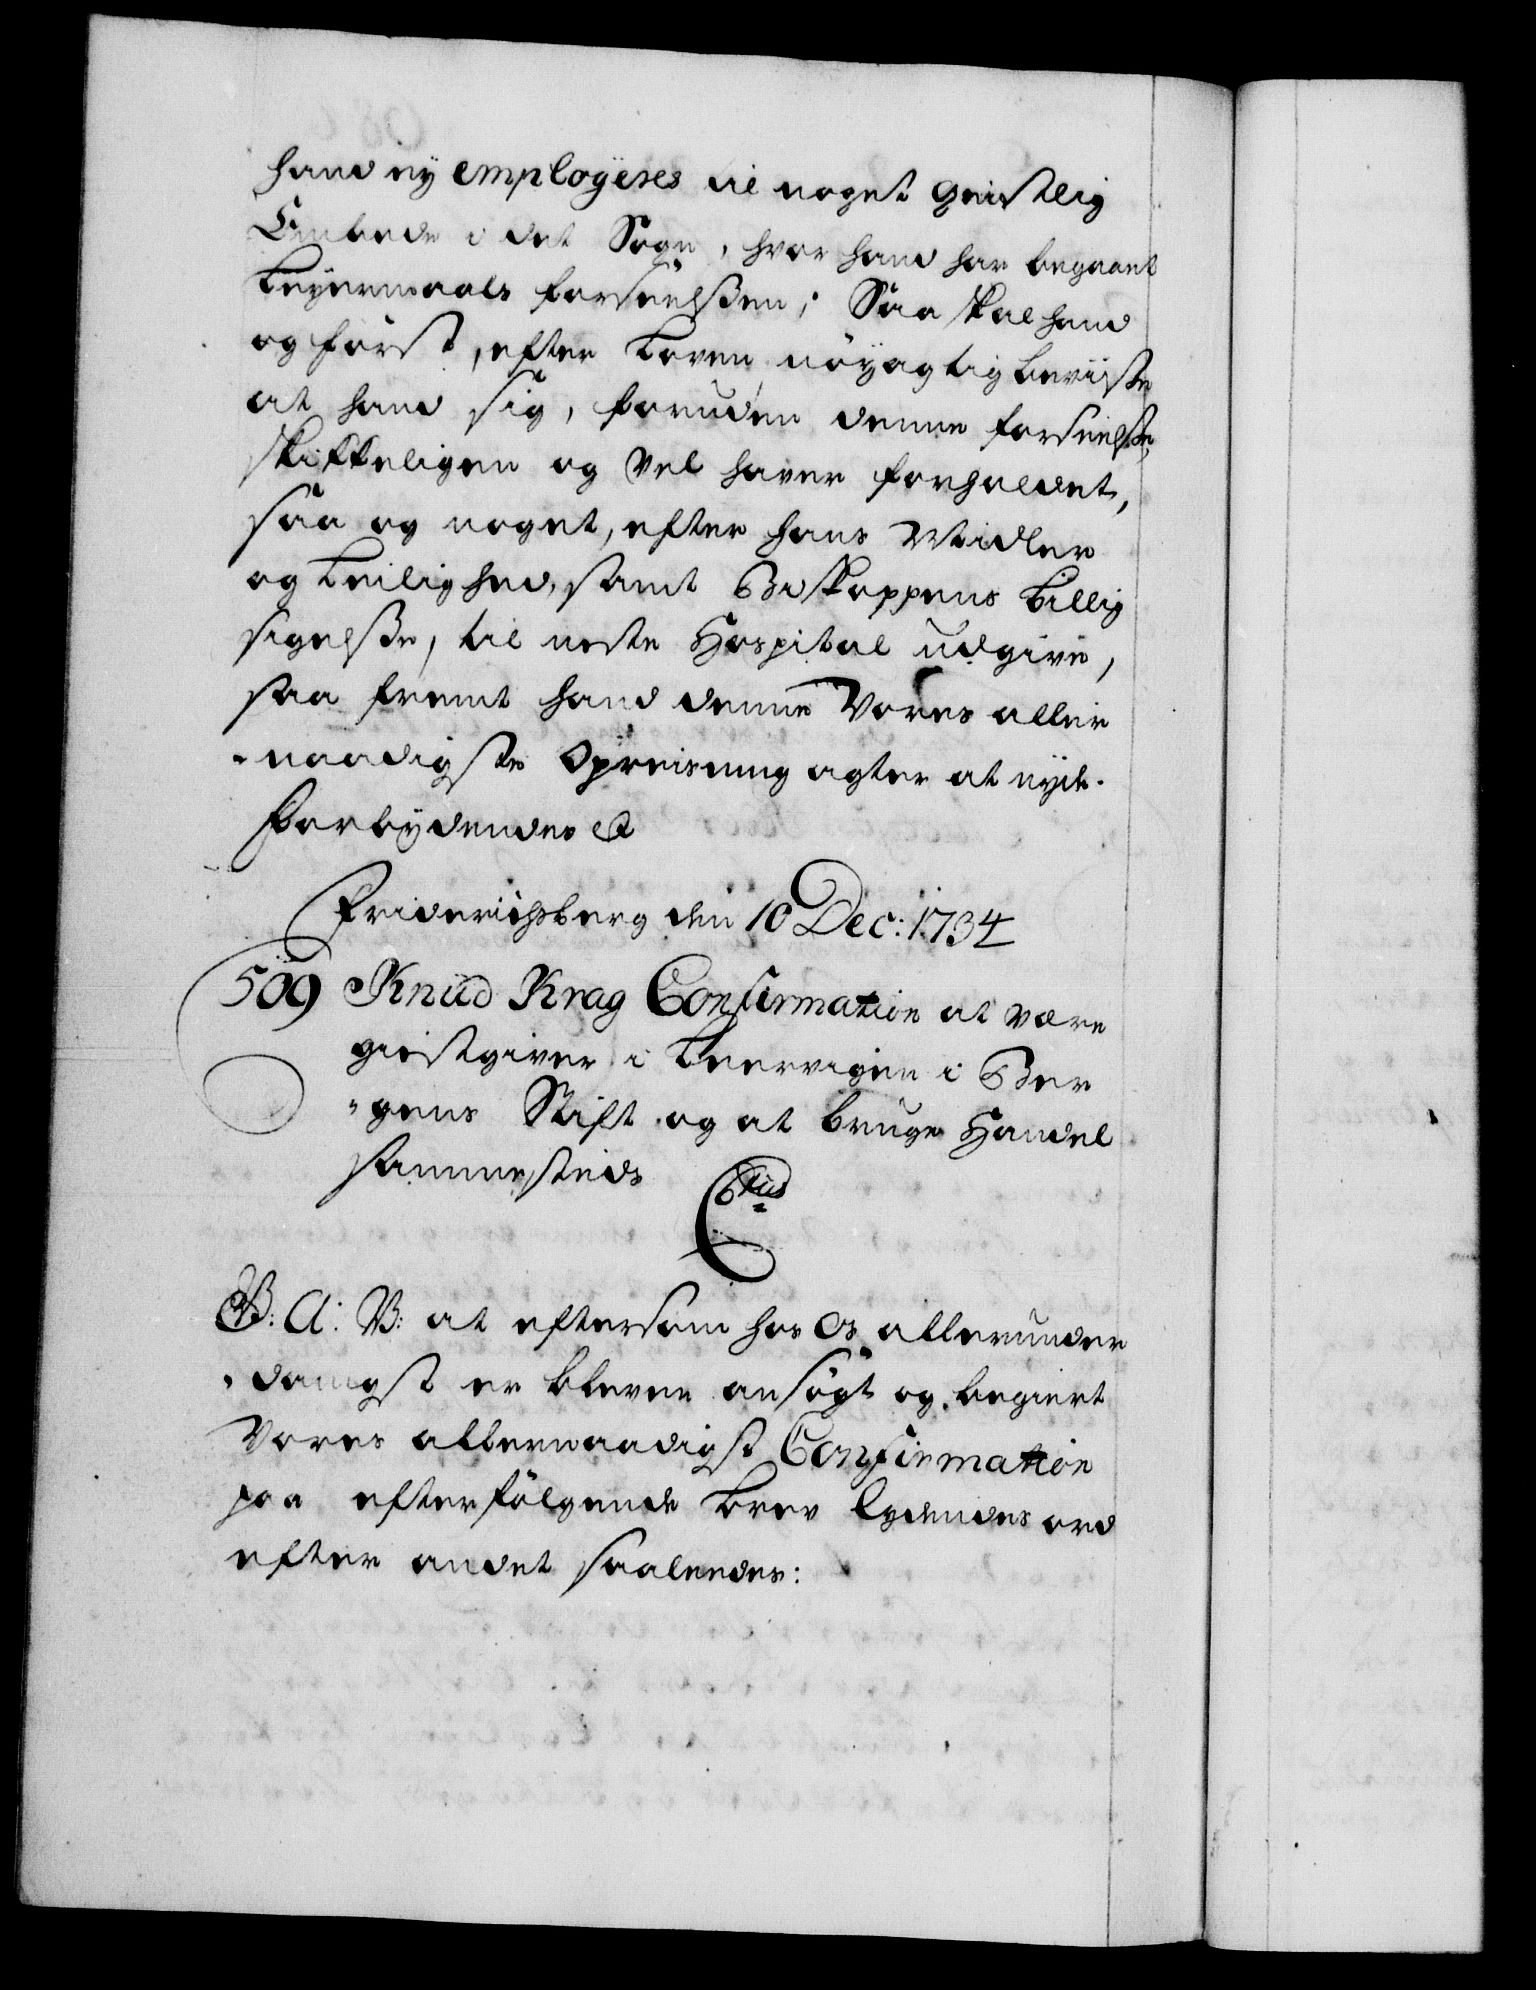 hand ey employeres til noget Geistlig
Embede i det Sogn, hvor hand har begaaet
Leyermaals forseelßen; Saa skal hand
og først, efter Loven nøyagtig beviiße
at hand sig, foruden denne forseelße,
skikkeligen og vel haver forholdet,
saa og noget, efter hans Midler
og Leilighed, samt Biskoppens billig
sigelße, til neste Hospital udgive,
saa fremt hand denne Vores aller
-naadigste Opreisning agter at nyde.
Forbydendes &
Friderichsberg den 10 Dec: 1734
509 Knud Krag Confirmation at være
giestgiver i Leervigen i Ber
-gens Stift og at bruge Handel
sammesteds
C6tus
G: A: V: at eftersom hos Os allerunder
-danigst er bleven ansøgt og begiert
Vores allernaadigst Confirmation
paa efterfølgende brev lydendes ord
efter andet saaledes: